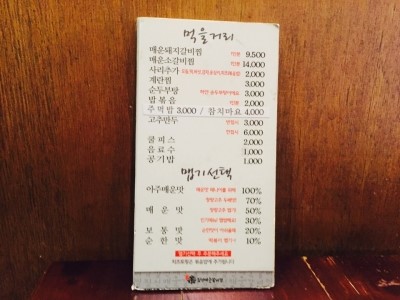 먹을거리
매운돼지갈비찜 1인분 9.500
매운소갈비찜 1인분 14.000
사리추가 2.000
계란찜 3.000
순두부탕 3.000
밥볶음 1인분 2.000
주먹밥 3.000 / 참치마요 4.000
고추만두 반접시 3.000
한접시 6.000
쿨피스 2.000
음료수 1.000
공기밥 1.000
맵기선택
아주매운맛 100%
70%
매운맛 50%
30%
보통맛 20%
순한맛 10%